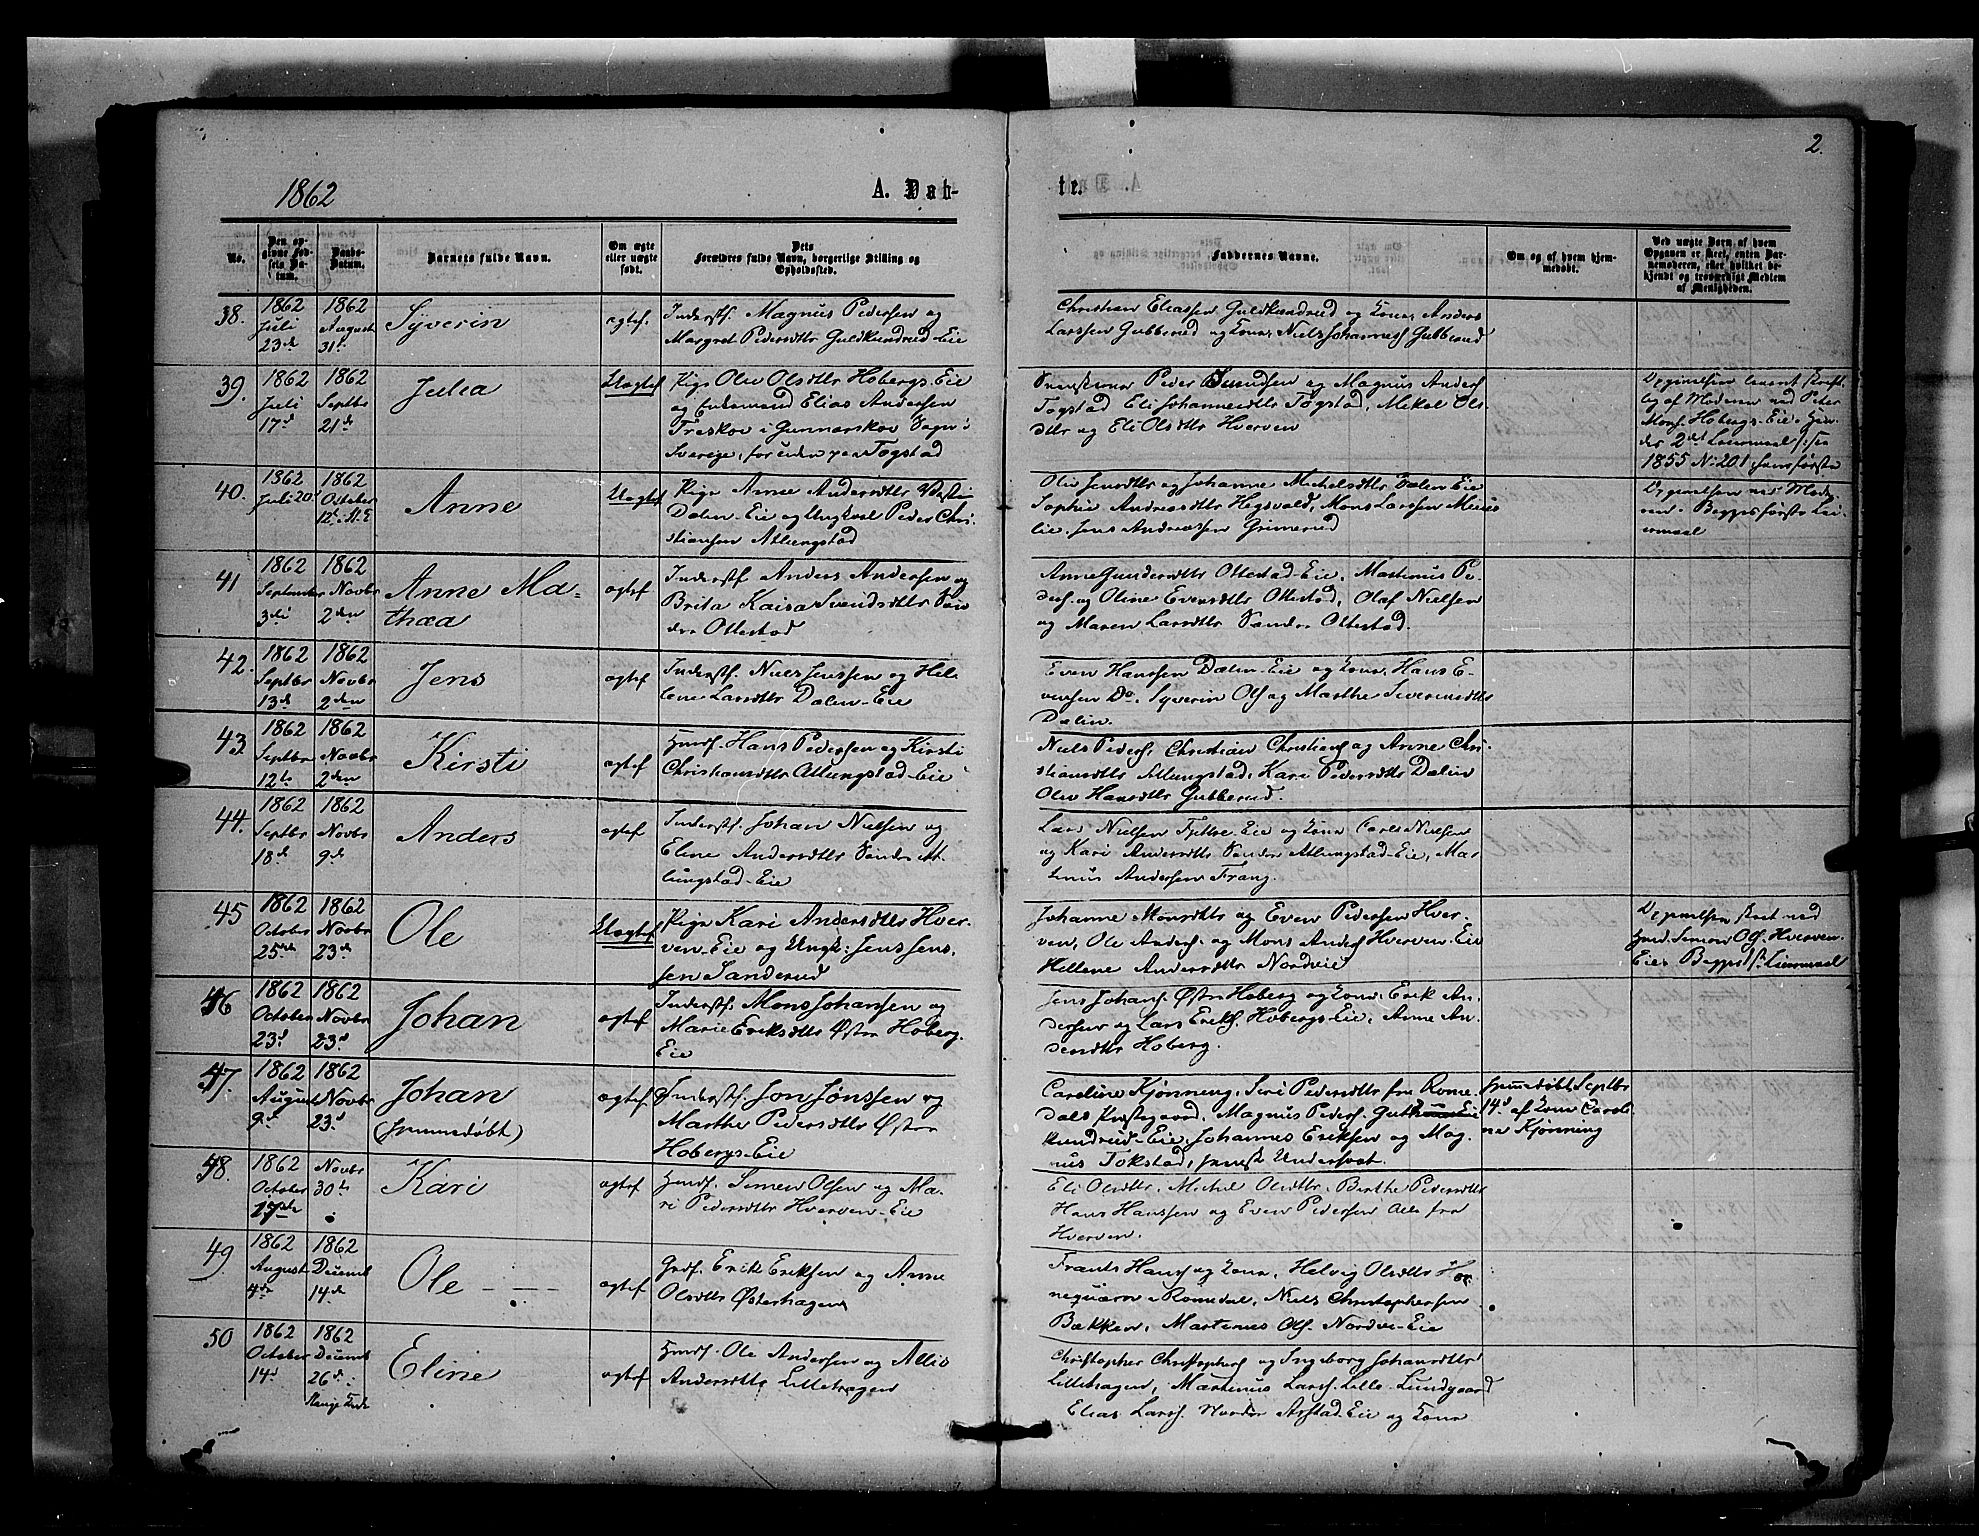 2.
1862
A. Dåb-
te.
No.
Den op-
givne Fød-
sels Da-
tum.
Daabs-
Datum.
Barnets fulde Navn.
Om ægte
eller uægte
født.
Dets
Forældres fulde Navn, borgerlige Stilling og
Opholdssted.
Faddernes Navne.
Om og af hvem hjem-
medøbt.
Ved uægte Børn af hvem
Opgaven er skeet, enten Bar-
nemoderen, eller hvilket be-
kjendt og troværdigt Medlem
af Menigheden.
38.
1862
Juli
23de
1862
August
31te
Syverin
ægtef.
Inderstf. Magnus Pedersen og
Margret Pedersdtr Guldkundrud-Eie
Christian Eliassen Guldkundrud og Kone, Anders
Larssen Gubberud og Kone, Niels Johannesf Gubberud
39.
1862
Juli
17d
1862
Septbr
21de
Julia
Uægtef
Pige Oliv Olsdtr Hobergs-Eie
og Enkemand Elias Andersen
Treskov i Gunnarskov Sogn i
Sverige, for tiden paa Togstad
Peder Svendsen og Magnus Andersf
Togstad, Eli Johannesdtr Togstad, Mikel Ols-
dtr og Eli Olsdtr Hverven
Opgivelsen levert skrift-
lig af Moderen ved Peter
Monsf. Hobergs-Eie. Hen-
des 2det Leiermaal, see
1855 No 201, hans første
40.
1862
Juli 20d
1862
Octbr
12te
Anne
Uægtef
Pige Anne Andersdtr
Dælin-Eie og Ungkarl Peder Chri-
stiansen Atlungstad
Oliv Jensdtr og Johanne Michelsdtr Dælen Eie
Sophie Andreasdtr Hegsvold, Mons Larssen
Eie. Jens Andreassen Grimerud
Opgivelsen ved Mode-
ren. Begges første Lei-
ermaal
41
1862
September
3die
1862
Novbr
2den
Anne Ma-
thea
ægtef
Inderstf Anders Andersen og
Brita Kaisa Svendsdtr Søn
dre Ottestad
Anne Gundersdtr Ottestad-Eie, Martinus Pe-
dersf. og Oline Evensdtr Ottestad, Olaf Nielsen
og Maren Larsdtr Søndre Ottestad.
42.
1862
Septbr
13de
1862
Novbr
2den
Jens
ægtef
Inderstf. Niels Jenssen og Hel-
lene Larsdtr Dælen-Eie
Even Hanssen Dælen-Eie og Kone, Hans E-
vensen Do. Syverin Olsf og Marthe Siversensdtr
Dælin.
43.
1862
Septbr
12te
1862
Novbr
2den
Kirsti
ægtef
Husmf. Hans Pedersen og Kirsti
Christiansdtr Atlungstad-Eie
Niels Pedersf. Christian Christiansf og Anne Chri-
stiansdtr Atlungstad, Kari Pedersdtr Dælin
Oliv Hansdtr Gubberud.
44.
1862
Septbr
18de
1862
Novbr
9de
Anders
ægtef
Inderstf. Johan Nielsen og
Eline Andersdtr Søndre At-
lungstad-Eie
Lars Nielsen Fjetre-Eie og Kone Carl Nielsen
og Kari Andersdtr Søndre Atlungstad-Eie, Mar-
tinus Andersen Frang.
45
1862
October
25de
1862
Novbr
23de
Ole
Uægtef
Pige Kari Andersdtr Hver-
ven-Eie og Ungk: Jens Jens-
sen Sanderud
Johanne Monsdtr og Even Pedersen Hver-
ven, Ole Andersf. og Mons Andersf Hverven-Eie
Hellene Andersdtr Nordvie
Opgivelsen skeet ved
Husm. Simen Olsf. Hverven-
Eie. Begges 1ste Leiermaal
46
1862
October
23d
1862
Novbr
23d
Johan
ægtef
Inderstf. Mons Johansen og
Marie Eriksdtr Østre Hoberg-
Eie
Jens Johansf. Østre Hoberg og Kone, Erik An-
dersen og Lars Eriksf. Hobergs-Eie, Anne An-
dersdtr Hoberg.
47.
1862
August
9de
1862
Novbr
23d
Johan
(hjemmedøbt)
ægtef
Inderstf. Jon Jonssen og
Marthe Pedersdtr Østre
Hobergs-Eie
Caroline Kjønning, Siri Pedersdtr fra Rome-
dals Præstegaard, Magnus Pedersf. Gul
kundrud-Eie, Johannes Eriksen og Mag-
nus Tokstad, svensk Undersaat.
Hjemmedøbt Septbr
14d af Kone Caroli
ne Kjønning
48.
1862
October
17de
Novbr
30te
Kari
ægtef
Husmf. Simen Olsen og Ma-
ri Pedersdtr Hverven-Eie
Eli Olsdtr, Michel Olsdtr, Berthe Pedersdtr
Hans Hanssen og Even Pedersen Alle fra
Hverven.
49.
1862
August
4de
1862
Decemb
14de
Ole
ægtef
Grdf. Erik Eriksen og Anne
Olsdtr Østerhagen
Frants Hansf og Kone, Helvig Olsdtr Hor-
nequærn - Romedal, Niels Christophersen
Bækken, Martinus Olsf. Nordvi-Eie
50
1862
October
14d
1862
Decemb
26de
Stange Kirke
Eline
ægtef
Husmf. Ole Andersen og Allis
Andersdtr Lillehagen
Christopher Christophersf og Ingeborg Johansdtr
Lillehagen, Martinus Larsf. Lille-Lundgaard
Elias Larsf. Nordre Arstad-Eie og Kone